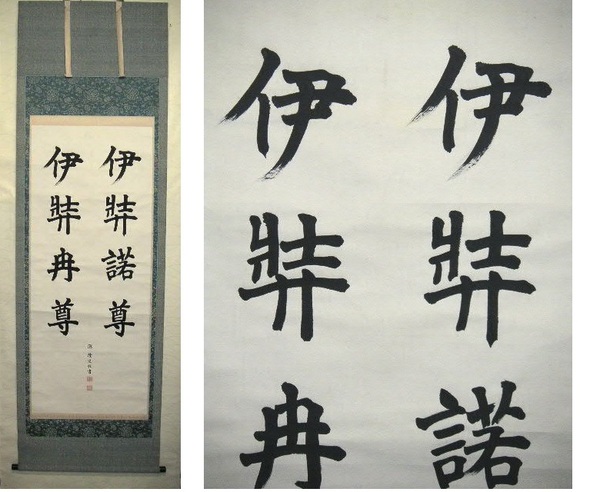 伊弉諾尊
伊弉冉尊
伊弉諾
伊弉冉